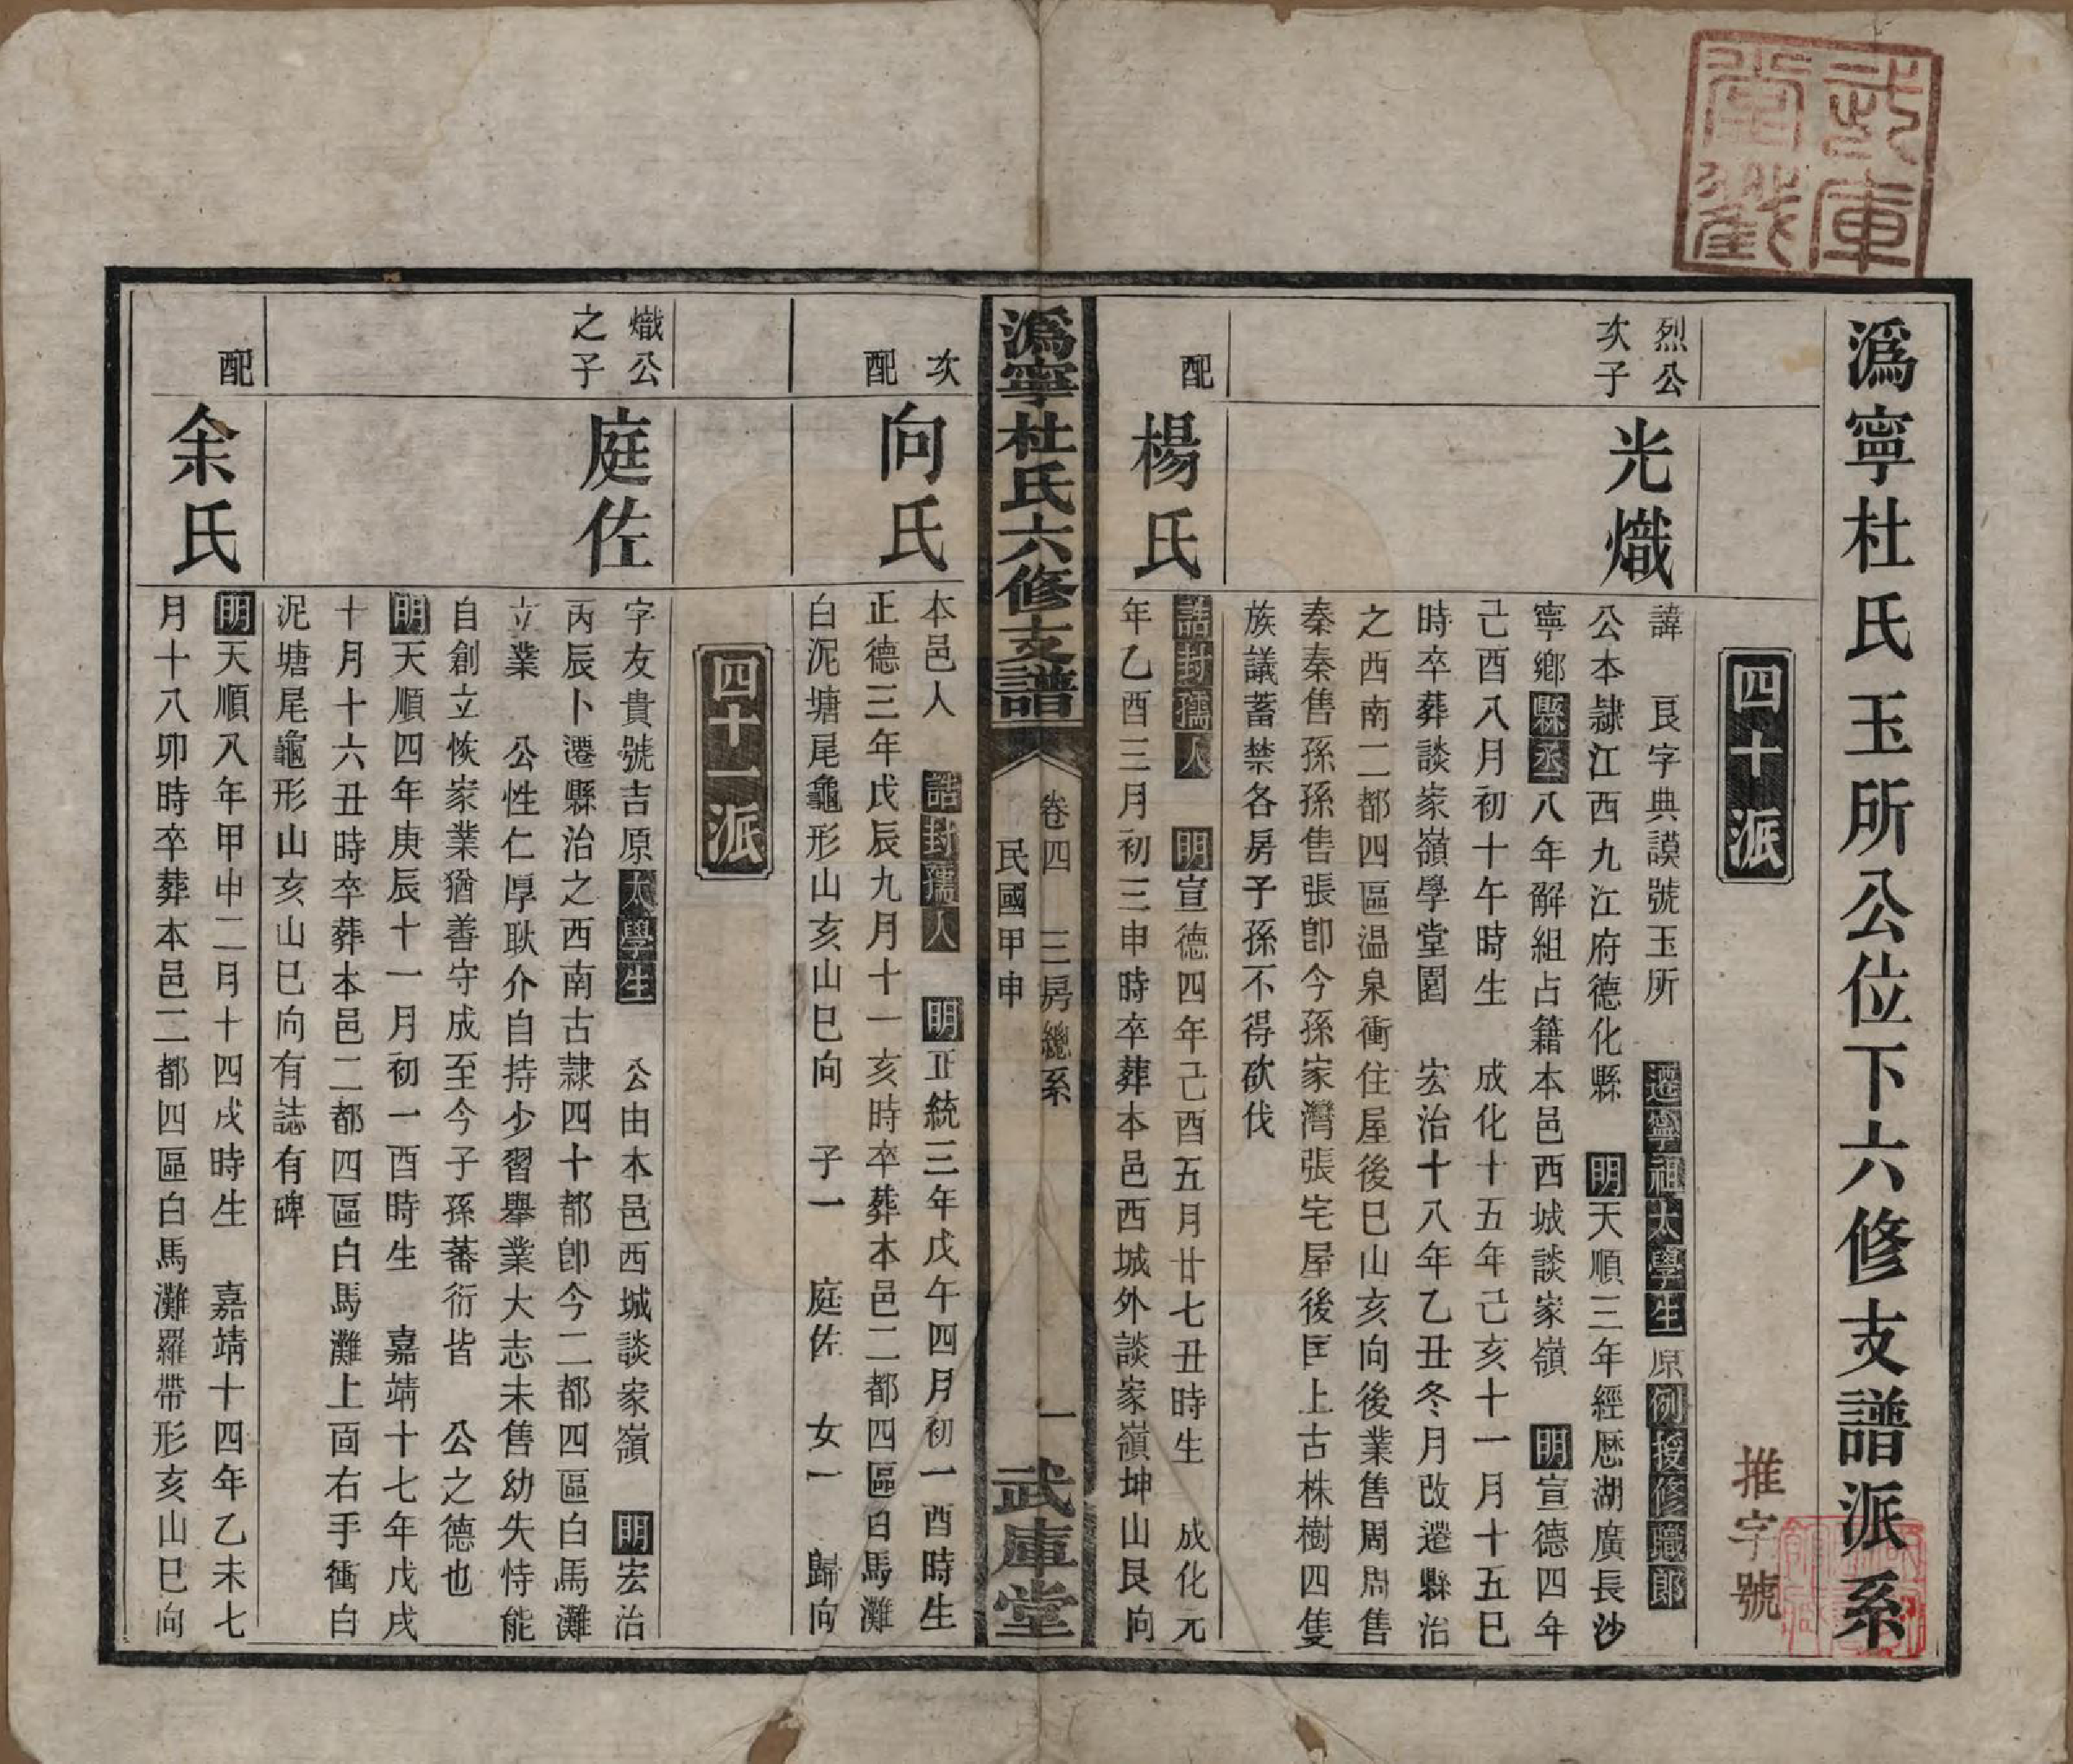 武庫堂戳
溈寧杜氏玉所公位下六修支譜派系
推字號
四十派
烈公
次子
光熾
諱 艮字典謨號玉所 遷寧祖太學生原例授修職郎
公本隷江西九江府德化縣 明天順三年經歷湖廣長沙
寧鄉縣丞八年解組占籍本邑西城談家嶺 明宣德四年
己酉八月初十午時生 成化十五年己亥十一月十五巳
時卒葬談家嶺學堂園 宏治十八年乙丑冬月改遷縣治
之西南二都四區温泉衝住屋後巳山亥向後業售周周售
秦秦售孫孫售張卽今孫家灣張宅屋後匡上古株樹四隻
族議蓄禁各房子孫不得砍伐
配
楊氏
誥封孺人 明宣德四年己酉五月廿七丑時生 成化元
年乙酉三月初三申時卒葬本邑西城外談家嶺坤山艮向
溈寧杜氏六修支譜
卷四 三房總系 一
民國甲申
武庫堂
次
配
向氏
本邑人 誥封孺人 明正統三年戊午四月初一酉時生
正德三年戊辰九月十一亥時卒葬本邑二都四區白馬灘
白泥塘尾龜形山亥山巳向 子一 庭佐 女一 歸向
四十一派
熾公
之子
庭佐
字友貴號吉原太學生 公由本邑西城談家嶺 明宏治
丙辰卜遷縣治之西南古隷四十都卽今二都四區白馬灘
立業 公性仁厚耿介自持少習舉業大志未售幼失恃能
自創立恢家業猶善守成至今子孫蕃衍皆 公之德也
明天順四年庚辰十一月初一酉時生 嘉靖十七年戊戌
十月十六丑時卒葬本邑二都四區白馬灘上面右手衝白
泥塘尾龜形山亥山巳向有誌有碑
配
余氏
明天順八年甲申二月十四戌時生 嘉靖十四年乙未七
月十八卯時卒葬本邑二都四區白馬灘羅帶形亥山巳向